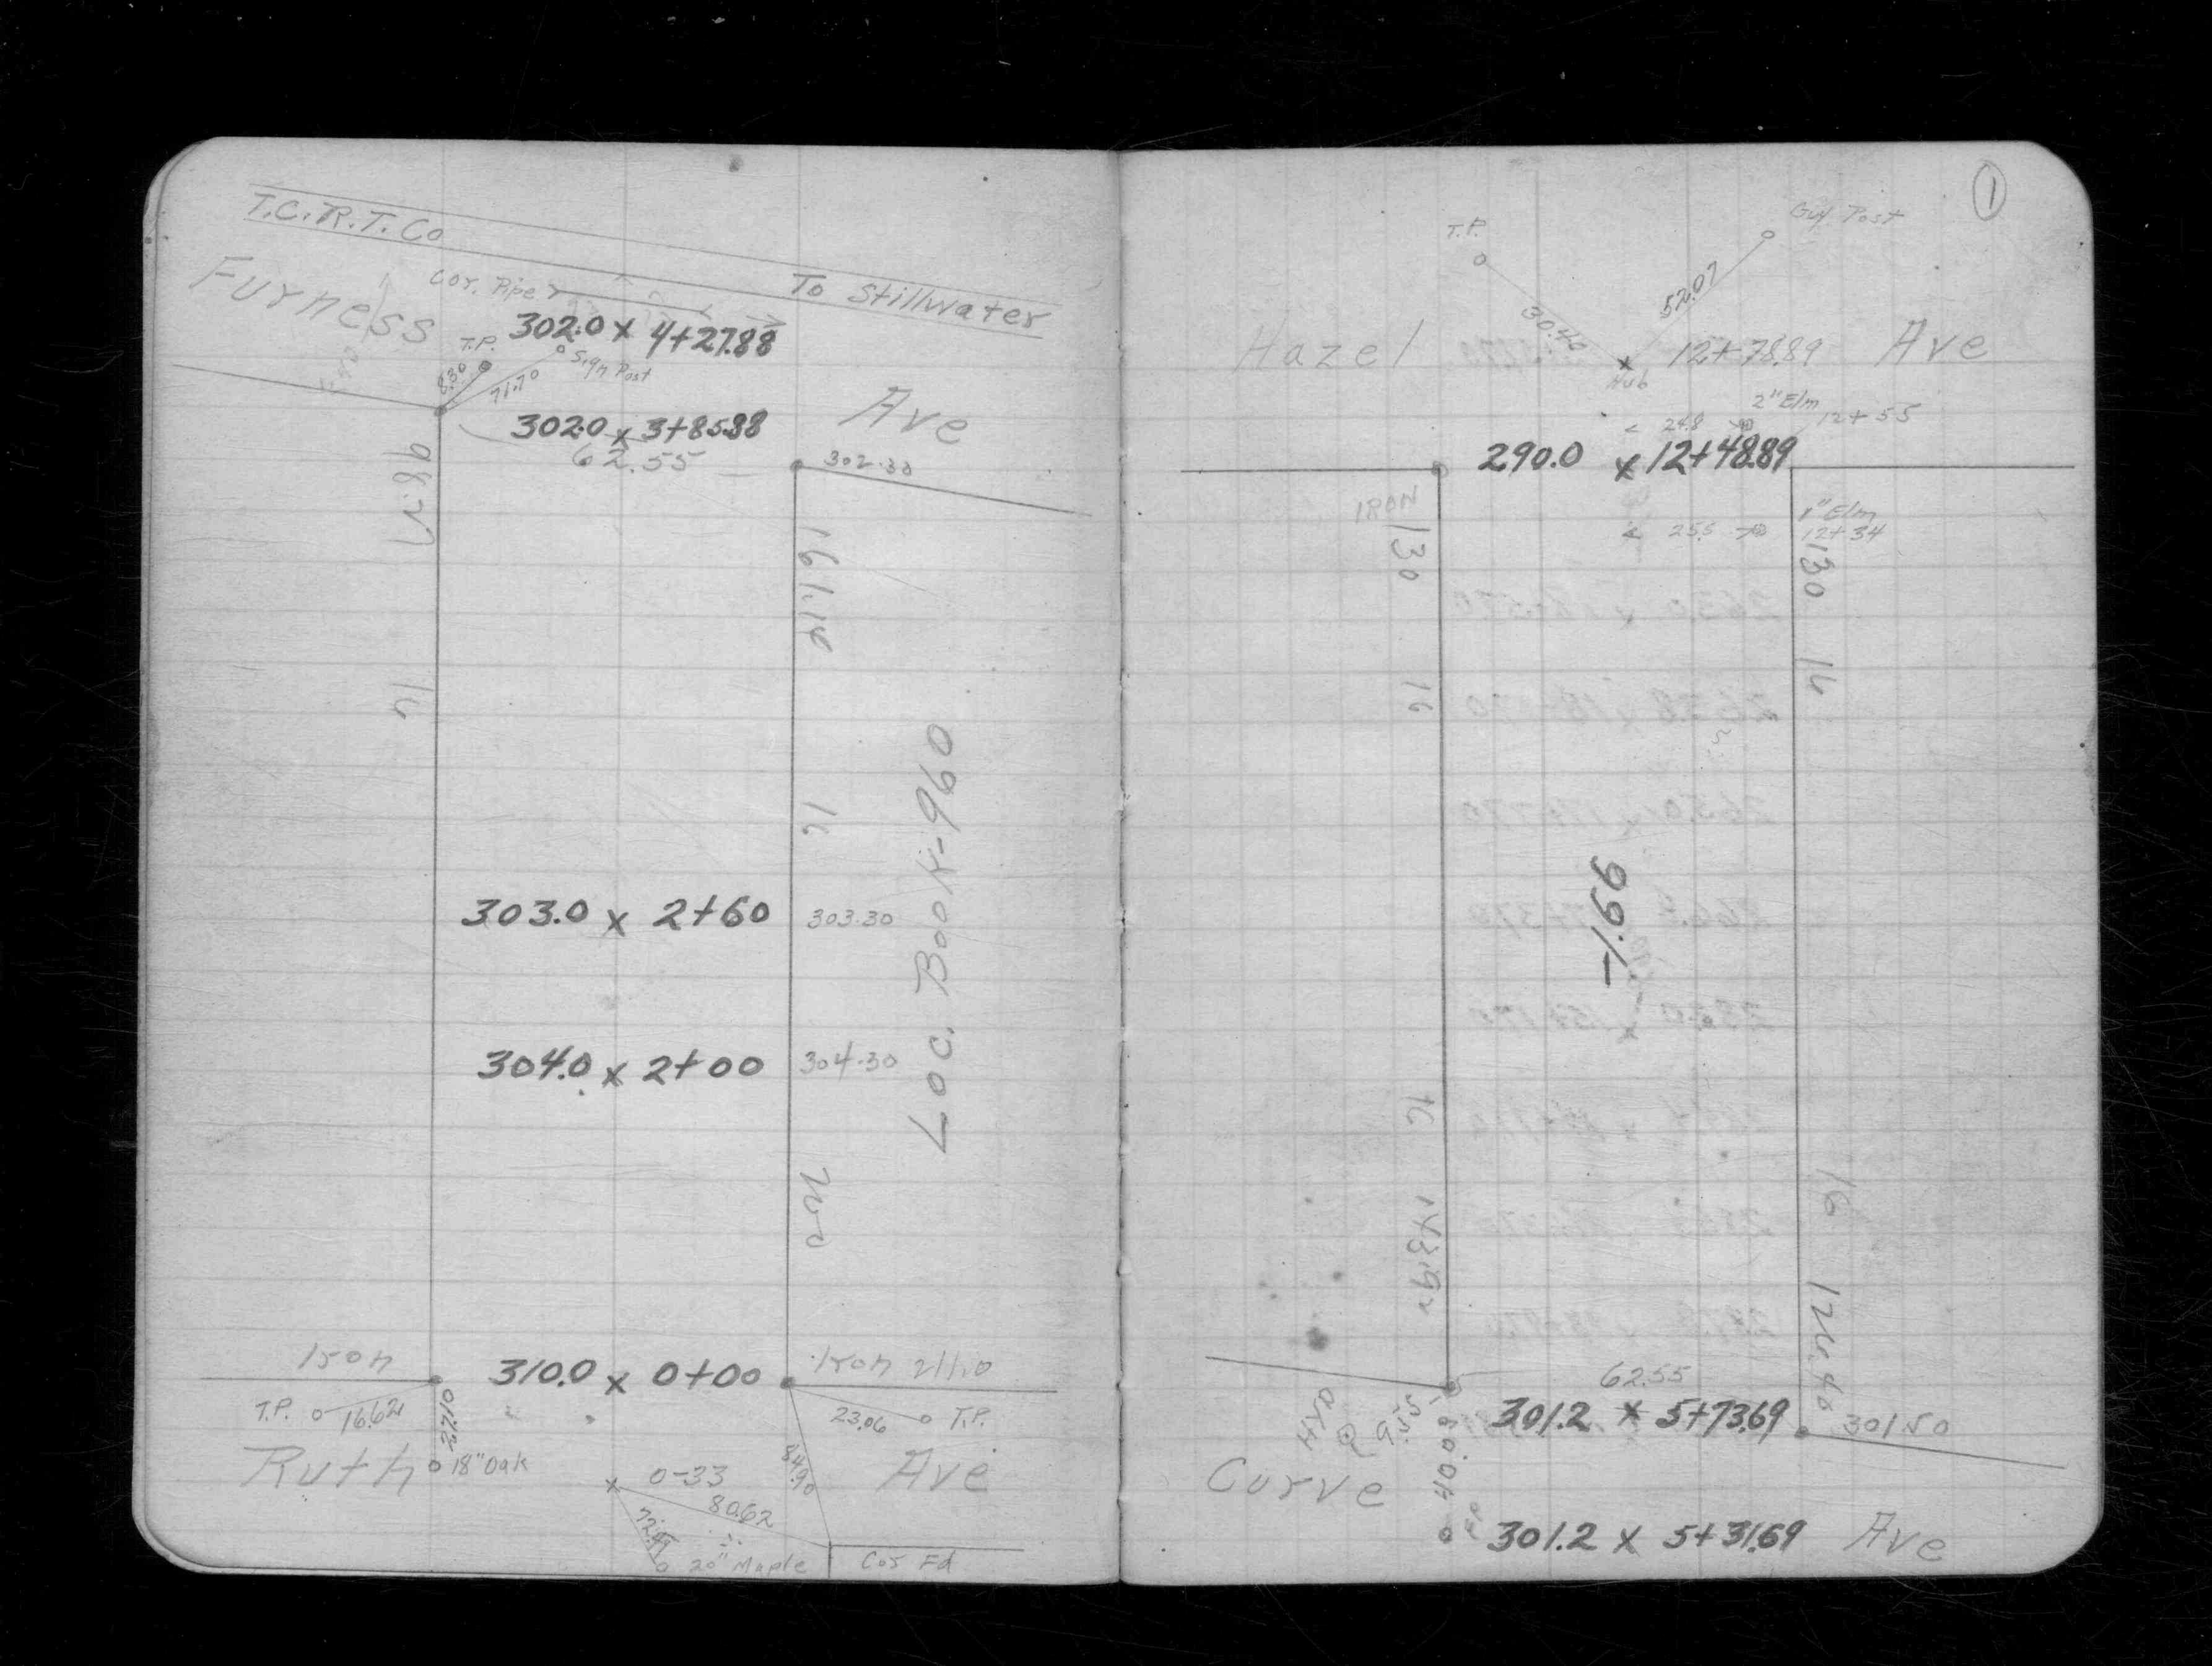 T.C.R.T. Co
To Stillwater
Furness
Cor. Pipe
302.0 x 4+27.88
T.P.
Sign Post
8.30
71.70
Ave
302.0 x 3+85.88
62.55
302.30
98.27
161.14
16
16
Loc. Book-960
303.0 x 2+60
303.30
304.0 x 2+00
304.30
Iron
310.0 x 0+00
Iron 211.0
T.P. 16.62
23.06 T.P.
22.10
Ruth
18" Oak
0-33
84.90
Ave
80.62
72.49
20" Maple
Cor Fd
1
T.P.
Guy Post
30.40
52.07
Hazel
12+78.89
Ave
Hub
2" Elm
24.8
12+55
290.0 x 12+48.89
IRON
1" Elm
25.5
12+34
130
130
16
16
-1.66
16
16
143.92
126.40
62.55
HYD
9.55
301.2 x 5+73.69
301.50
Curve
40.08
301.2 x 5+31.69
Ave